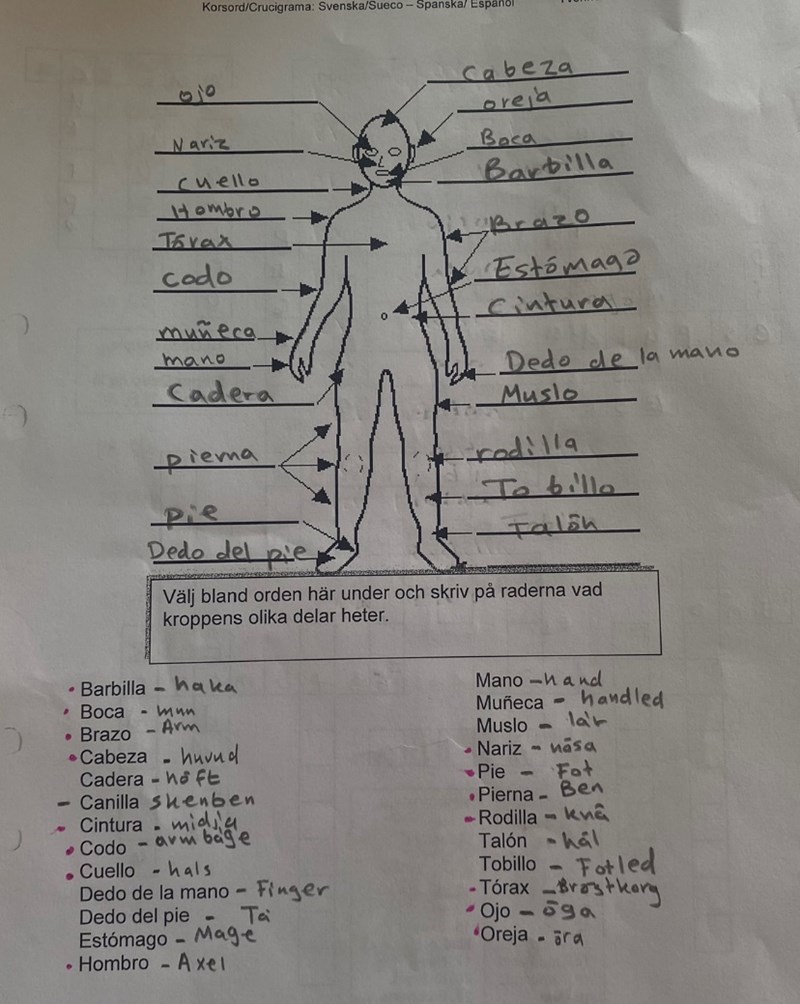 Korsord/Crucigrama: Svenska/Sueco – Spanska/ Español
ojo
Cabeza
oreja
Nariz
Boca
Barbilla
cuello
Hombro
Brazo
Tórax
Estómago
codo
Cintura
muñeca
mano
Dedo de la mano
Cadera
Muslo
pierna
rodilla
Tobillo
pie
Talón
Dedo del pie
Välj bland orden här under och skriv på raderna vad
kroppens olika delar heter.
Barbilla - haka
Boca - mun
Brazo - Arm
Cabeza - huvud
Cadera - höft
Canilla skenben
Cintura - midja
Codo - armbåge
Cuello - hals
Dedo de la mano - Finger
Dedo del pie - Tå
Estómago - Mage
Hombro - Axel
Mano - hand
Muñeca - handled
Muslo - lår
Nariz - näsa
Pie - Fot
Pierna - Ben
Rodilla - knä
Talón - häl
Tobillo - Fotled
Tórax - Bröstkorg
Ojo - öga
Oreja - öra